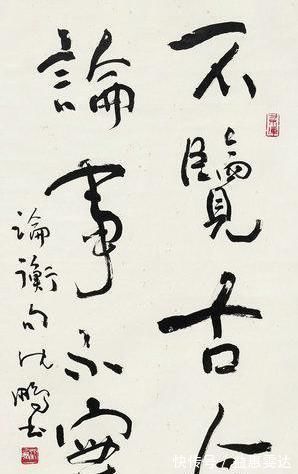 不覽古今
論事不實
論衡句沈鵬書
快传号/益惠雯达